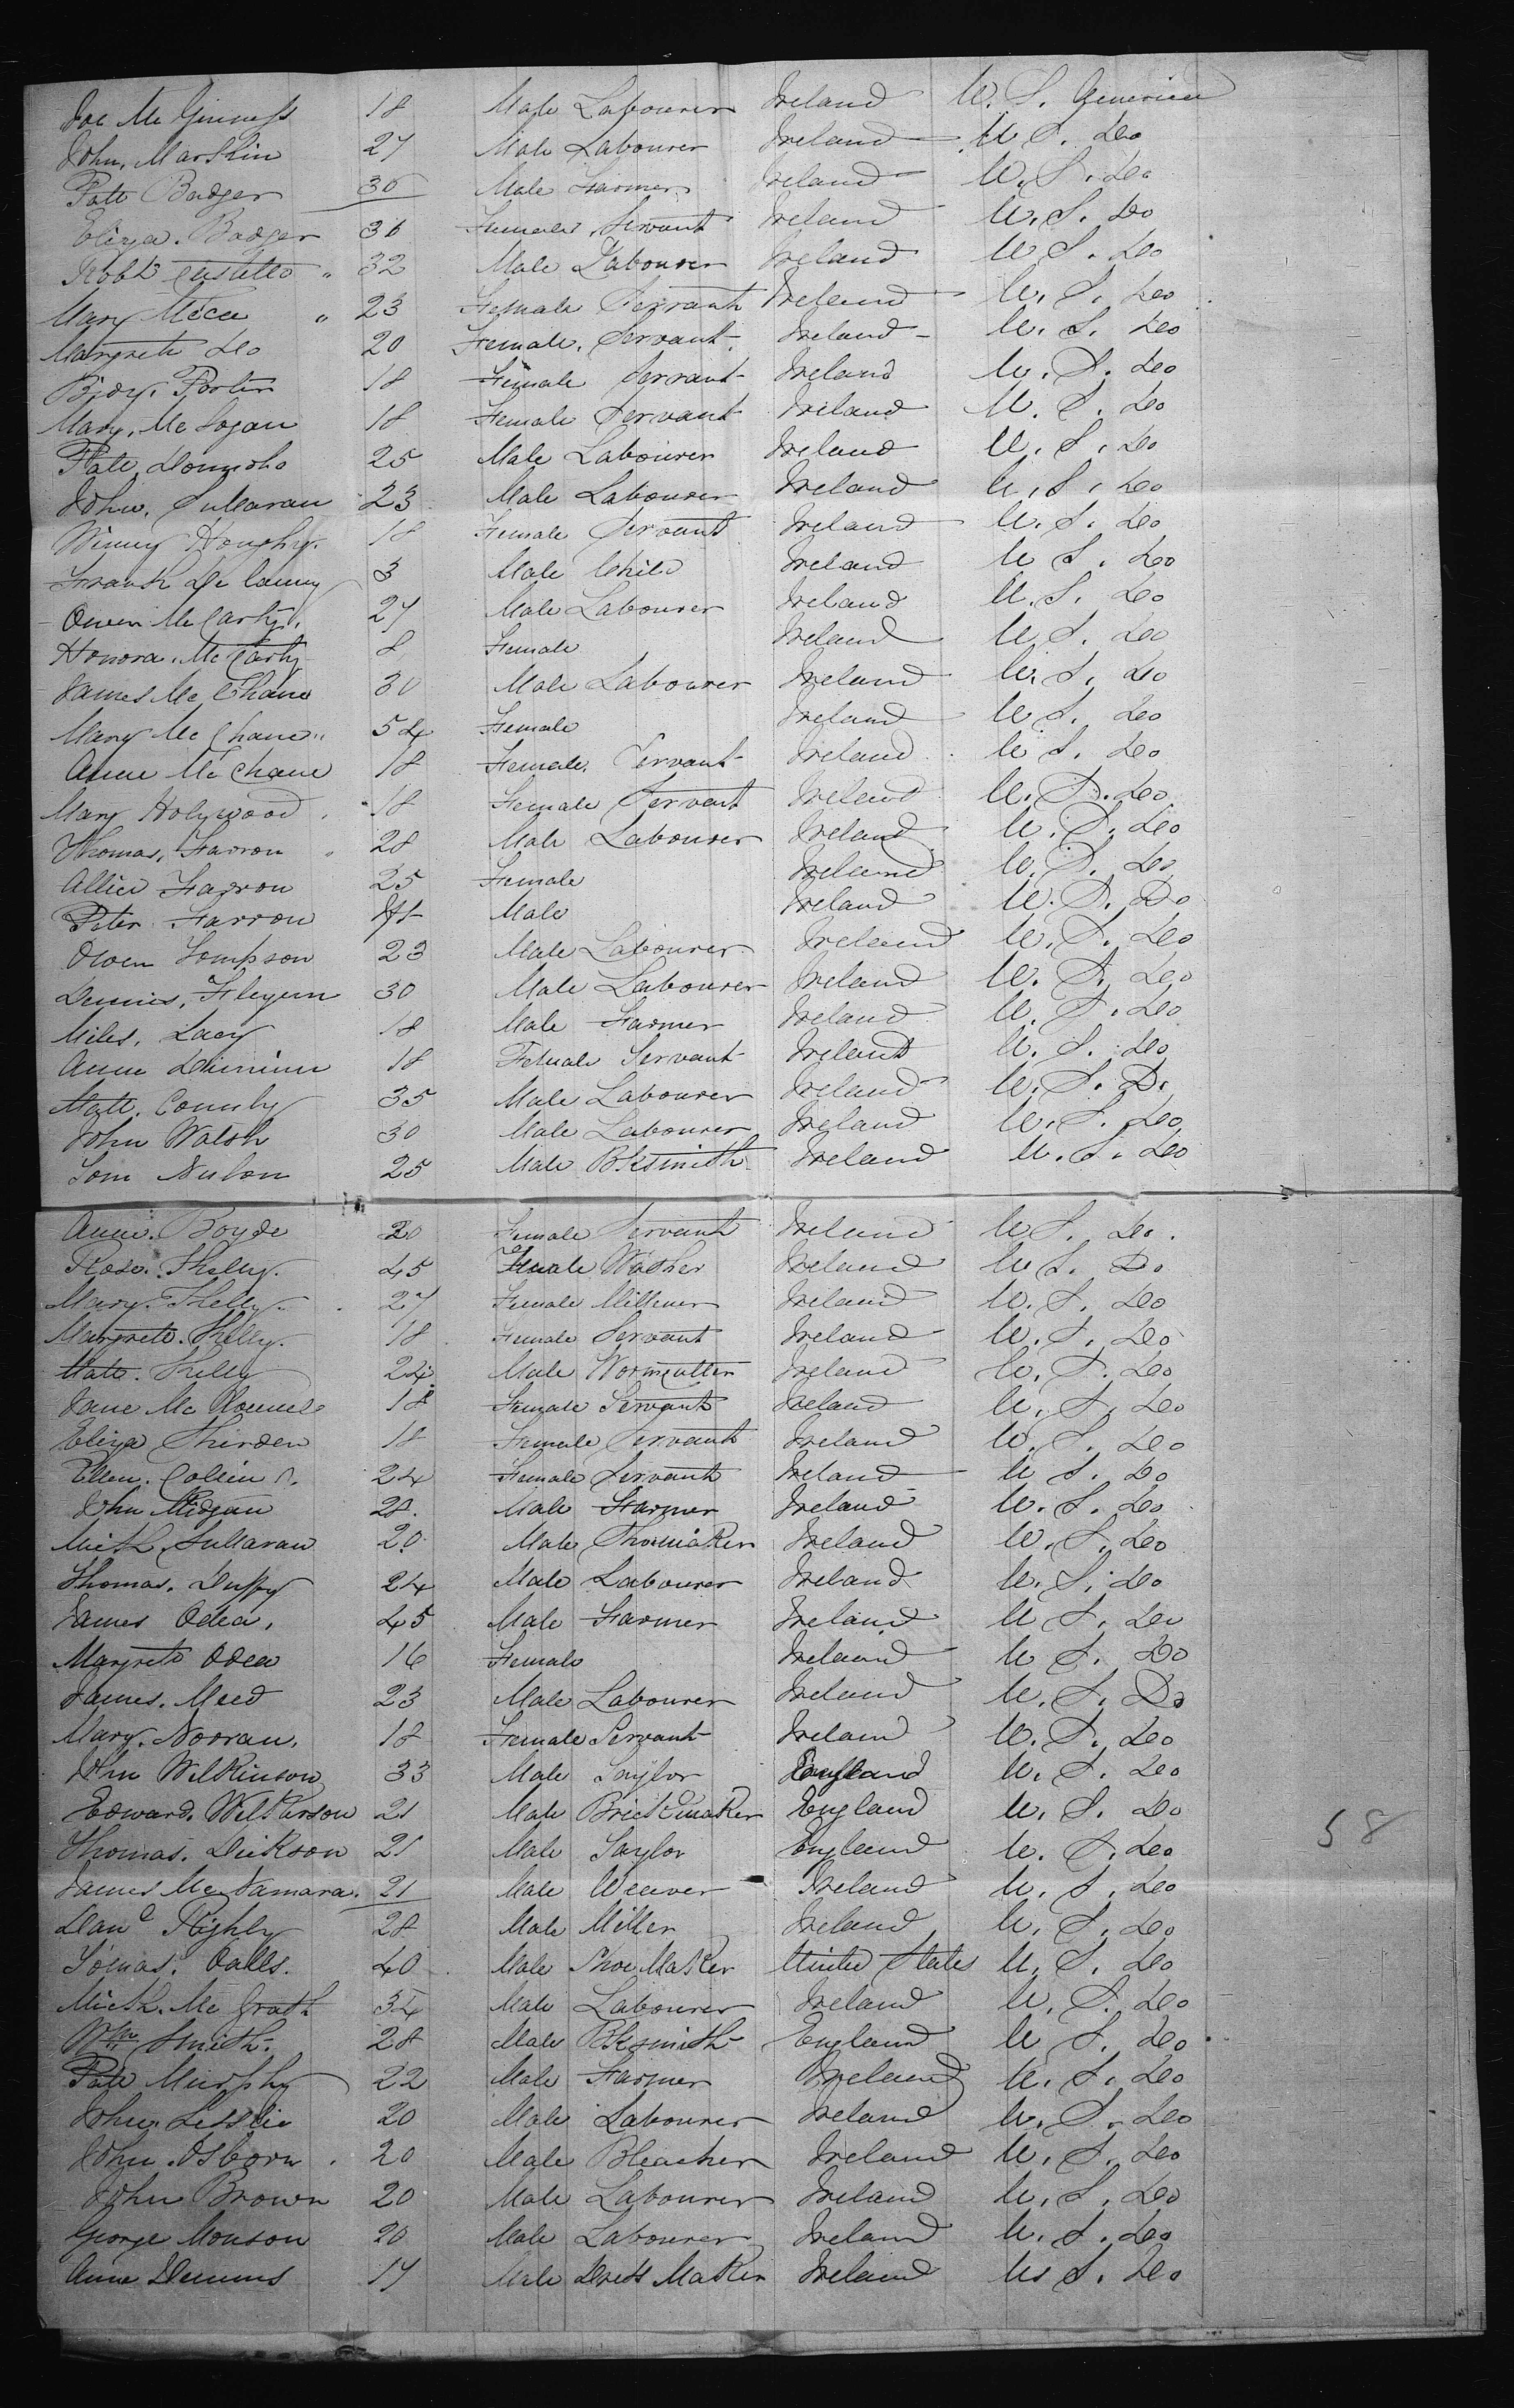 Joe Mc Ginness 18 Male Labourer Ireland U. S. America
John, Marskin 27 Male Labourer Ireland U S. Do
Patt Badger 36 Male Farmer Ireland U. S. Do
Eliza. Badger 36 Female Servant Ireland U. S. Do
Robt Custello " 32 Male Labourer Ireland U S. Do
Mary " 23 Female Servant Ireland U. S. Do
Margrett Do 20 Female. Servant Ireland U. S. Do
Bidy. Porter 18 Female Servant Ireland U. S. Do
Mary, Mc Logan 18 Female Servant Ireland U. S. Do
Patt, Donnoho 25 Male Labourer Ireland U. S. Do
John. Sullavan 23 Male Labourer Ireland U. S. Do
Winny Houghy. 18 Female Servant Ireland U. S. Do
Frank De lanny 3 Male Child Ireland U S. Do
Owen Mc Carty. 27 Male Labourer Ireland U. S. Do
Honora. Mc Carty 8 Female Ireland U. S. Do
James Mc Chane 30 Male Labourer Ireland U. S. Do
Mary Mc Chane " 54 Female Ireland U S. Do
Anne Mc Chane 18 Female. Servant Ireland U S. Do
Mary Holywood 18 Female Servant Ireland U. S. Do
Thomas, Farron " 28 Male Labourer Ireland U. S. Do
Allice Farron 25 Female Ireland U. S. Do
Peter Farron Male Ireland U. S. Do
Owen Tompson 23 Male Labourer Ireland U. S. Do
Dennis, Flegum 30 Male Labourer Ireland U. S. Do
Miles, Lacy 18 Male Farmer Ireland U. S. Do
Anne 18 Female Servant Ireland U. S. Do
Matt. Connly 35 Male Labourer Ireland U. S. D.
John Walsh 30 Male Labourer Ireland U. S. Do
Tom Nulon 25 Male Bksmith Ireland U. S. Do
Anne. Boyde 20 Female Servant Ireland U S. Do.
Rose. Shelly. 45 Female Washer Ireland U S. Do
Mary. Shelly. 27 Female Milliner Ireland U. S. Do
Margrett. Shelly. 18 Female Servant Ireland U. S. Do
Matt. Shelly 24 Male Ireland U. S. Do
Jane Mc 18 Female Servant Ireland U. S. Do
Eliza Shirden 18 Female Servant Ireland U. S. Do
Ellen. Collins. 24 Female Servant Ireland U S. Do
John 28. Male Farmer Ireland U. S. Do
Mich. Sullavan 20 Male Shoemaker Ireland U. S. Do
Thomas. Duffy 24 Male Labourer Ireland U. S. Do
James Odea. 45 Male Farmer Ireland U S. Do
Margrett Odea 16 Female Ireland U S. Do
James. Meed 23 Male Labourer Ireland U. S. Do
Mary. Nooran. 18 Female Servant Ireland U. S. Do
John Wilkinson 33 Male Taylor England U. S. Do
Edward. Wilkerson 21 Male Brickmaker England U. S. Do
Thomas. Dickson 21 Male Taylor England U. S. Do
James Mc Namara. 21 Male Weaver Ireland U. S. Do
Danl Highly 28 Male Miller Ireland U. S. Do
Tomas. Oalls. 40 Male Shoe Maker United States U. S. Do
Mich. Mc Grath 34 Male Labourer Ireland U. S. Do
Wm Smith. 28 Male Bksmith England U S. Do
Patt Murphy 22 Male Farmer Ireland U. S. Do
John. Lesslie 20 Male Labourer Ireland U. S. Do
John. Osborn 20 Male Bleacher Ireland U. S. Do
John Brown 20 Male Labourer Ireland U. S. Do
George Monson 20 Male Labourer Ireland U. S. Do
Anne Dennis 17 Male Dress Maker Ireland U. S. Do
58